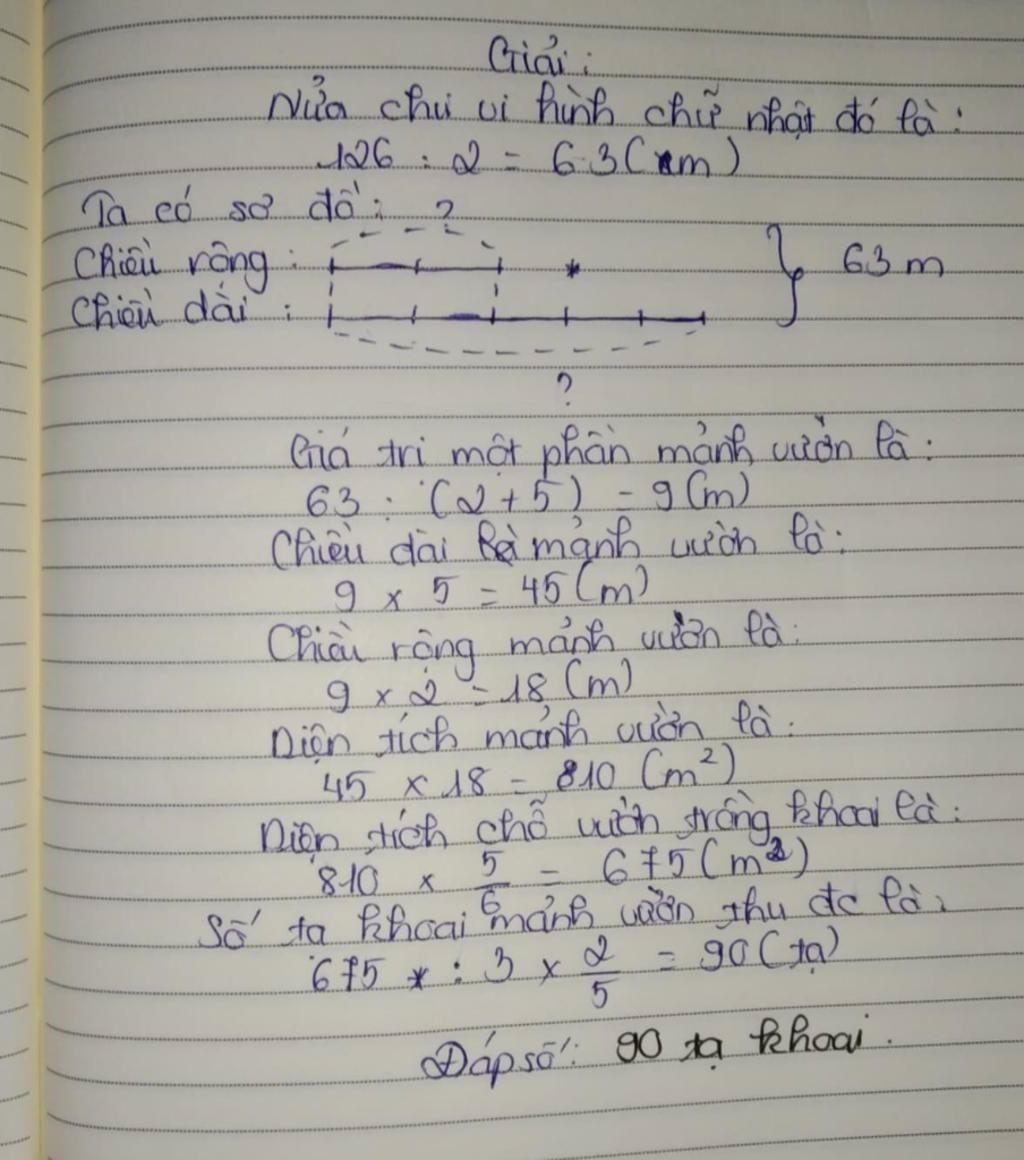 Giải:
Nửa chu vi hình chữ nhật đó là:
126 : 2 = 63 (m)
Ta có sơ đồ: ?
Chiều rộng :
63 m
Chiều dài :
?
Giá trị một phần mảnh vườn là:
63 : (2 + 5) = 9 (m)
Chiều dài mảnh vườn là:
9 x 5 = 45 (m)
Chiều rộng mảnh vườn là:
9 x 2 = 18 (m)
Diện tích mảnh vườn là:
45 x 18 = 810 (m²)
Diện tích chỗ vườn trồng khoai là:
810 x 5/6 = 675 (m²)
Số tạ khoai mảnh vườn thu đc là:
675 : 3 x 2/5 = 90 (tạ)
Đáp số: 90 tạ khoai.